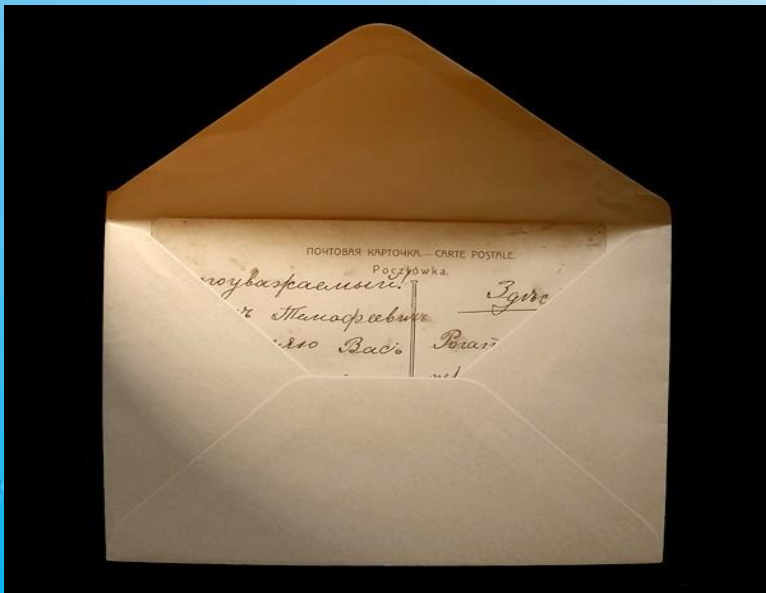 ПОЧТОВАЯ КАРТОЧКА — CARTE POSTALE.
Pocztówka.
гоуважаемый!
ъ Тимофеевичъ
ляю Васъ
Здѣс